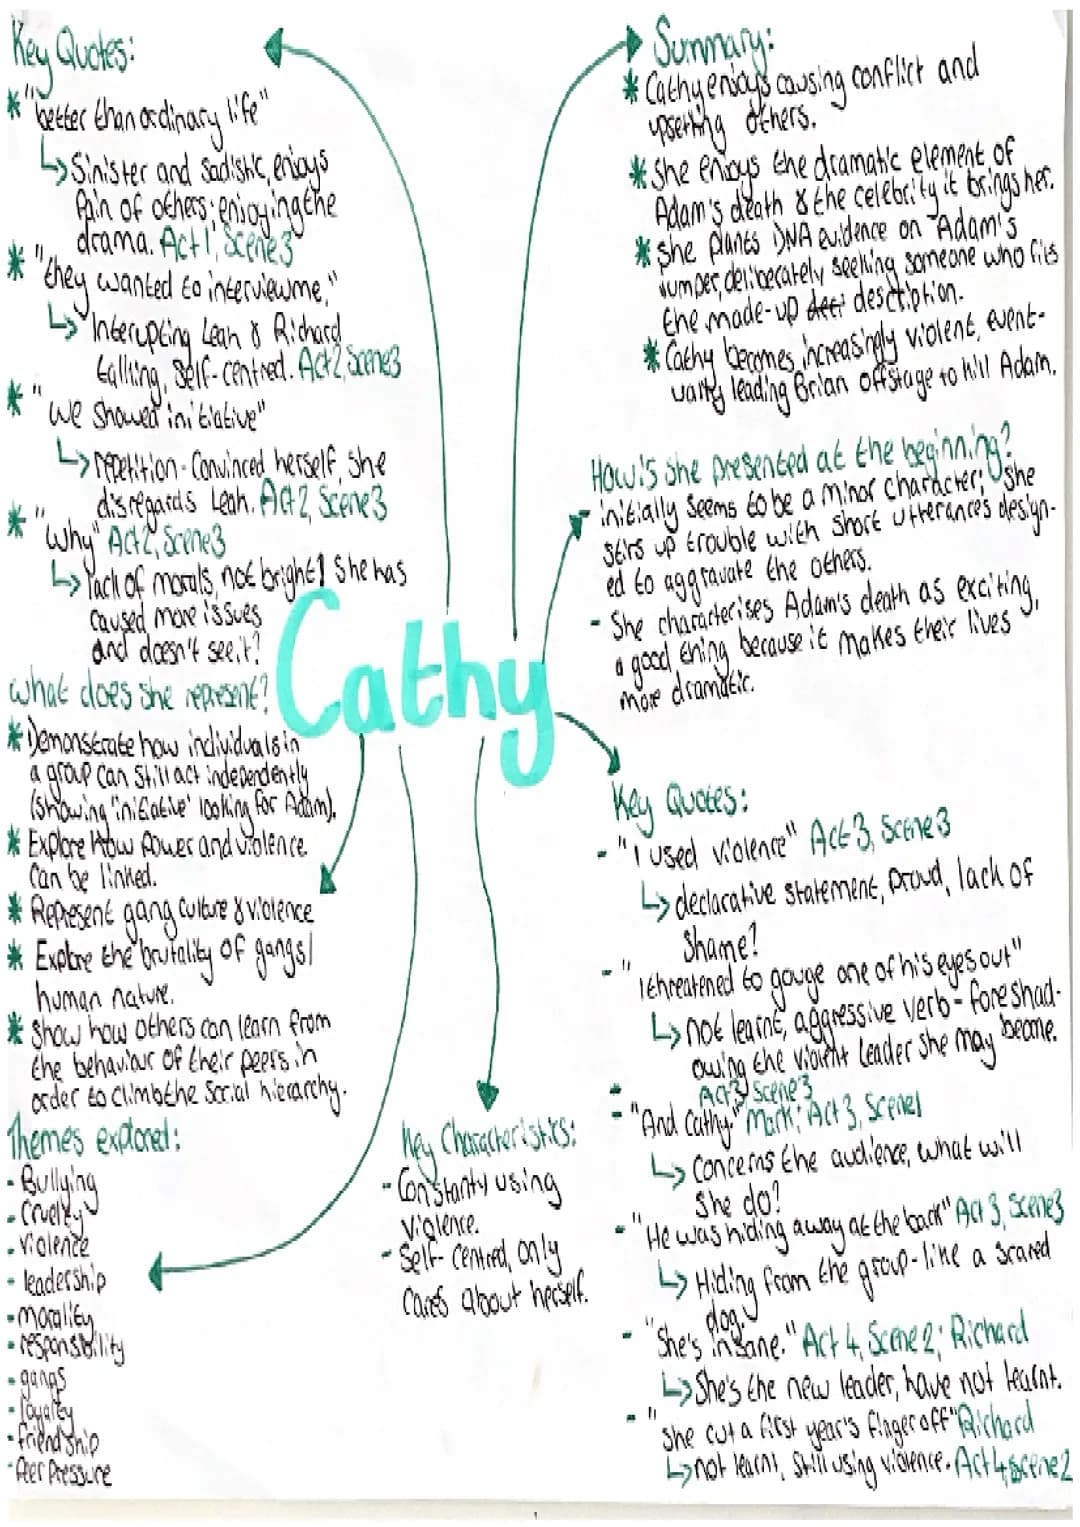 Key Quotes:
* "better than ordinary life"
↳ Sinister and sadistic, enjoys
pain of others; enjoying the
drama. Act 1, Scene 3
* "they wanted to interview me,"
↳ Interupting Leah & Richard
talking, self-centred. Act 2, Scene 3
* "we showed initiative"
↳ repetition - Convinced herself, she
disregards Leah. Act 2, Scene 3
* "Why" Act 2, Scene 3
↳ lack of morals, not bright? She has
caused more issues
and doesn't see it?
what does she represent?
* Demonstrate how individuals in
a group can still act independently
(showing 'initiative' looking for Adam).
* Explore how power and violence
can be linked.
* Represent gang culture & violence
* Explore the brutality of gangs/
human nature.
* Show how others can learn from
the behaviour of their peers in
order to climb the social hierarchy.
Themes explored:
- Bullying
- Cruelty
- violence
- leadership
- morality
- responsibility
- gangs
- loyalty
- friendship
- Peer Pressure
Cathy
Key Characteristics:
- Constantly using
violence.
- Self-centred, only
cares about herself.
Summary:
* Cathy enjoys causing conflict and
upsetting others.
* She enjoys the dramatic element of
Adam's death & the celebrity it brings her.
* She plants DNA evidence on Adam's
jumper, deliberately seeking someone who fits
the made-up description.
* Cathy becomes increasingly violent, event-
ually leading Brian offstage to kill Adam.
How is she presented at the beginning?
- initially seems to be a minor character; she
stirs up trouble with short utterances design-
ed to aggravate the others.
- She characterises Adam's death as exciting,
a good thing because it makes their lives
more dramatic.
Key Quotes:
- "I used violence" Act 3, Scene 3
↳ declarative statement, proud, lack of
shame?
- "I threatened to gouge one of his eyes out"
↳ not learnt, aggressive verb - foreshad-
owing the violent leader she may become.
Act 3, Scene 3
- "And Cathy." Mark; Act 3, Scene 1
↳ Concerns the audience, what will
she do?
- "He was hiding away at the back" Act 3, Scene 3
↳ Hiding from the group - like a scared
dog.
- "She's insane." Act 4, Scene 2; Richard
↳ She's the new leader, have not learnt.
- "she cut a first year's finger off" Richard
↳ not learnt, still using violence. Act 4, scene 2